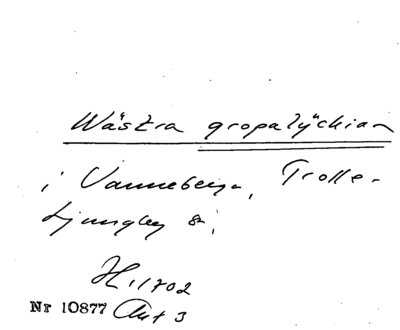 Wästra gropalyckian
i Vanneberga, Trolle-
Ljungby sn,
H. 1702
Nr 10877 Akt 3